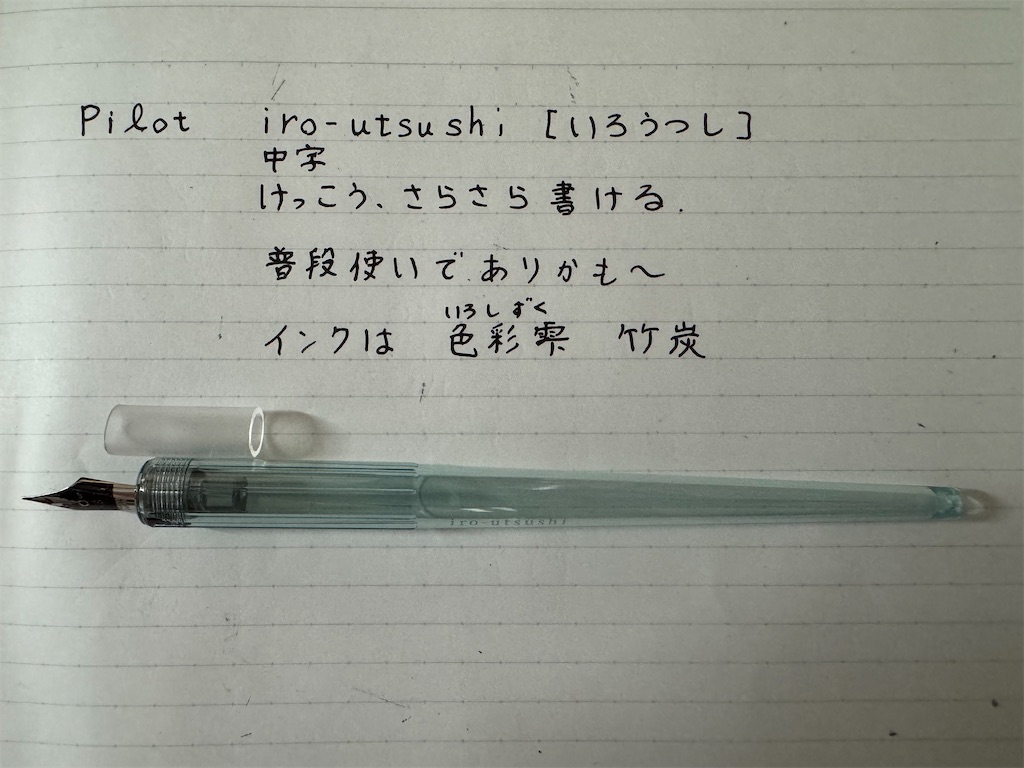 Pilot iro-utsushi [いろうつし]
中字
けっこう、さらさら書ける.
普段使いでありかも〜
いろしずく
インクは 色彩雫 竹炭
iro-utsushi